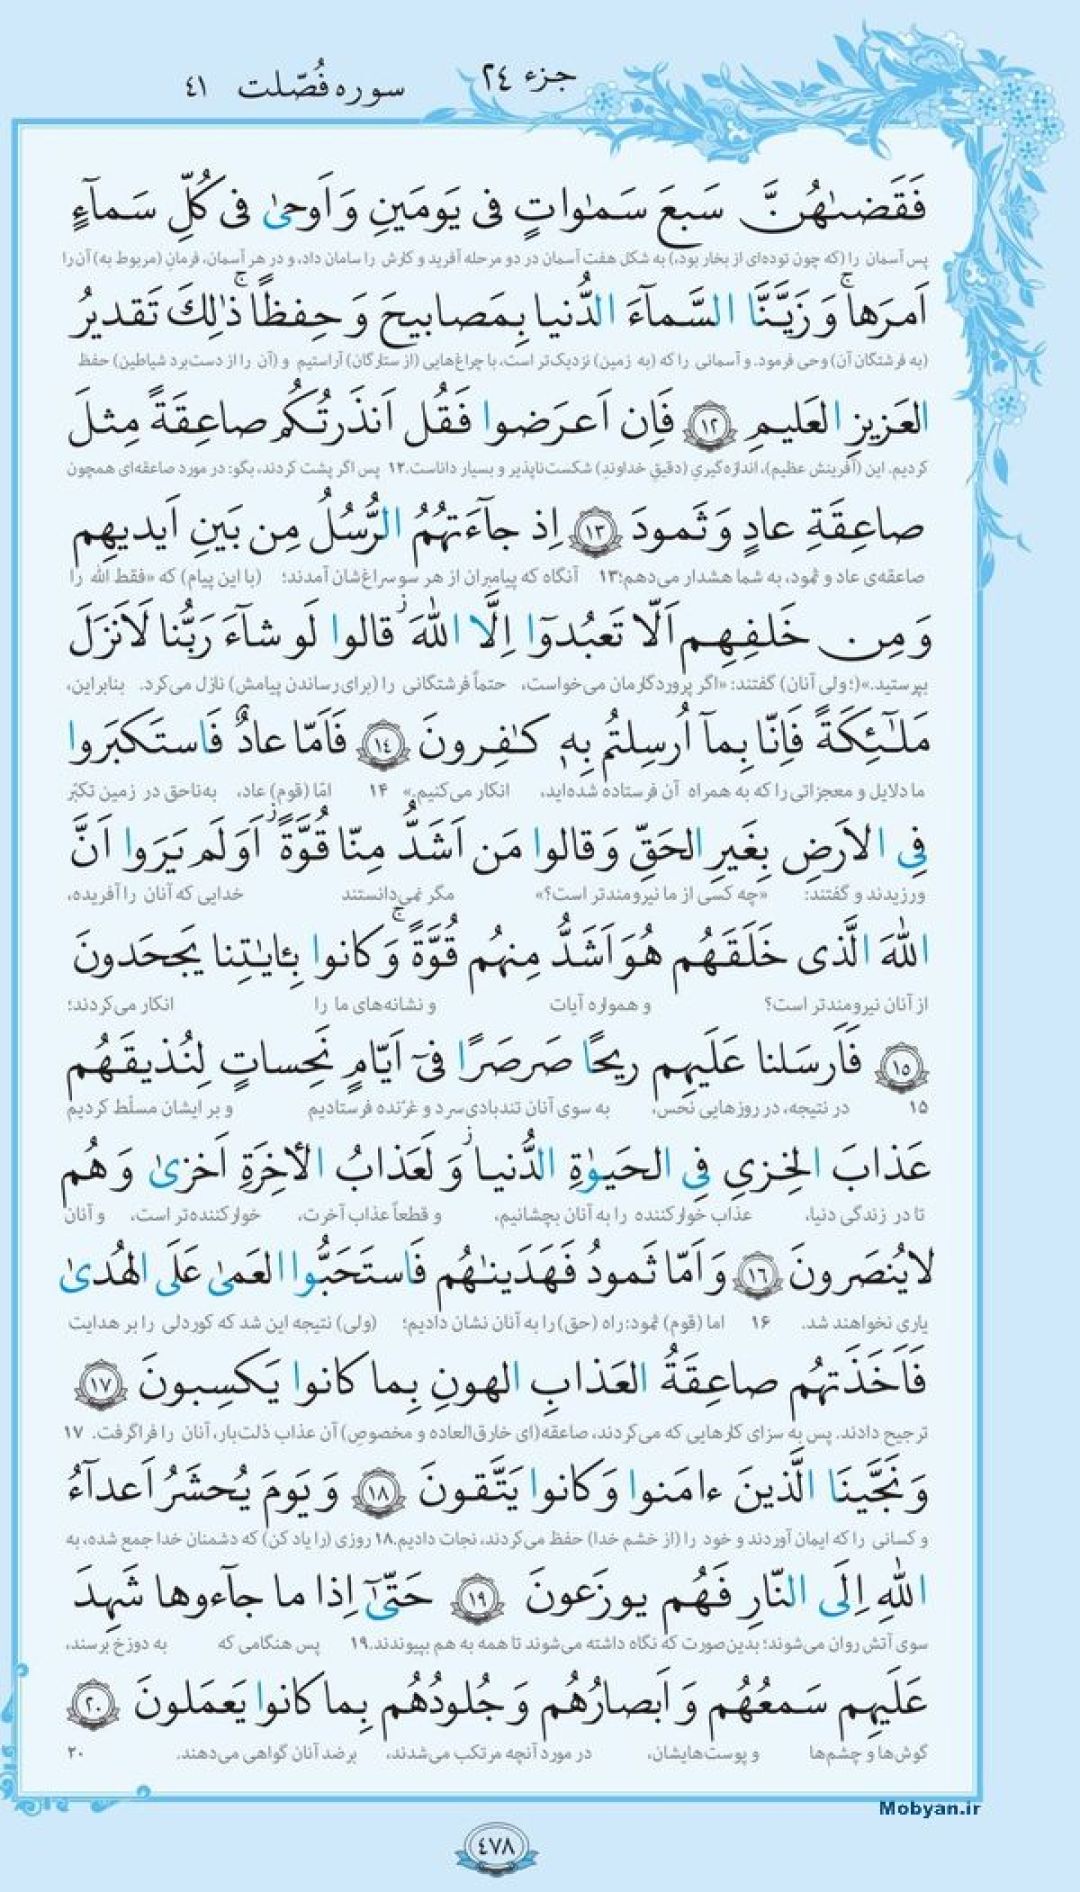 جزء ٢٤
سوره فُصّلت ٤١
فَقَضىٰهُنَّ سَبعَ سَمٰواتٍ فی یَومَینِ وَ اَوحیٰ فی کُلِّ سَمآءٍ
پس آسمان را (که چون توده‌ای از بخار بود،) به شکل هفت آسمان در دو مرحله آفرید و کارش را سامان داد، و در هر آسمان، فرمان (مربوط به) آن را
اَمرَها ۚ وَ زَیَّنَّا السَّمآءَ الدُّنیا بِمَصابیحَ وَ حِفظًا ۚ ذٰلِكَ تَقدیرُ
(به فرشتگان آن) وحی فرمود. و آسمانی را که (به زمین) نزدیک‌تر است، با چراغ‌هایی (از ستارگان) آراستیم و (آن را از دست‌برد شیاطین) حفظ
العَزیزِ العَلیمِ ١٢ فَاِن اَعرَضوا فَقُل اَنذَرتُکُم صاعِقَةً مِثلَ
کردیم. این (آفرینش عظیم)، اندازه‌گیریِ (دقیقِ خداوندِ) شکست‌ناپذیر و بسیار داناست.۱۲ پس اگر پشت کردند، بگو: در مورد صاعقه‌ای همچون
صاعِقَةِ عادٍ وَ ثَمودَ ١٣ اِذ جآءَتهُمُ الرُّسُلُ مِن بَینِ اَیدیهِم
صاعقه‌ی عاد و ثمود، به شما هشدار می‌دهم؛۱۳ آنگاه که پیامبران از هر سو سراغ‌شان آمدند؛ (با این پیام) که «فقط الله را
وَ مِن خَلفِهِم اَلّا تَعبُدوٓا اِلَّا اللهَ ۖ قالوا لَو شآءَ رَبُّنا لَاَنزَلَ
بپرستید.»(؛ولی آنان) گفتند: «اگر پروردگارمان می‌خواست، حتماً فرشتگانی را (برای رساندن پیامش) نازل می‌کرد. بنابراین،
مَلٰٓئِکَةً فَاِنّا بِمآ اُرسِلتُم بِهٖ کٰفِرونَ ١٤ فَاَمّا عادٌ فَاستَکبَروا
ما دلایل و معجزاتی را که به همراه آن فرستاده شده‌اید، انکار می‌کنیم.» ۱۴ امّا (قوم) عاد، به‌ناحق در زمین تکبّر
فِی الاَرضِ بِغَیرِ الحَقِّ وَ قالوا مَن اَشَدُّ مِنّا قُوَّةً ۖ اَوَلَم یَرَوا اَنَّ
ورزیدند و گفتند: «چه کسی از ما نیرومندتر است؟» مگر نمی‌دانستند خدایی که آنان را آفریده،
اللهَ الَّذی خَلَقَهُم هُوَ اَشَدُّ مِنهُم قُوَّةً ۚ وَ کانوا بِـٔایٰتِنا یَجحَدونَ
از آنان نیرومندتر است؟ و همواره آیات و نشانه‌های ما را انکار می‌کردند؛
١٥ فَاَرسَلنا عَلَیهِم ریحًا صَرصَرًا فیٓ اَیّامٍ نَحِساتٍ لِنُذیقَهُم
۱۵ در نتیجه، در روزهایی نحس، به سوی آنان تندبادی سرد و غرّنده فرستادیم و بر ایشان مسلّط کردیم
عَذابَ الخِزیِ فِی الحَیوٰةِ الدُّنیا ۖ وَ لَعَذابُ الأخِرَةِ اَخزیٰ وَ هُم
تا در زندگی دنیا، عذاب خوارکننده را به آنان بچشانیم، و قطعاً عذاب آخرت، خوارکننده‌تر است، و آنان
لایُنصَرونَ ١٦ وَ اَمّا ثَمودُ فَهَدَینٰهُم فَاستَحَبُّوا العَمیٰ عَلَی الهُدیٰ
یاری نخواهند شد. ۱۶ اما (قوم) ثمود: راه (حق) را به آنان نشان دادیم؛ (ولی) نتیجه این شد که کوردلی را بر هدایت
فَاَخَذَتهُم صاعِقَةُ العَذابِ الهونِ بِما کانوا یَکسِبونَ ١٧
ترجیح دادند. پس به سزای کارهایی که می‌کردند، صاعقه(ای خارق‌العاده و مخصوص) آن عذاب ذلت‌بار، آنان را فراگرفت. ۱۷
وَ نَجَّینَا الَّذینَ ءامَنوا وَ کانوا یَتَّقونَ ١٨ وَ یَومَ یُحشَرُ اَعدآءُ
و کسانی را که ایمان آوردند و خود را (از خشم خدا) حفظ می‌کردند، نجات دادیم.۱۸ روزی (را یاد کن) که دشمنان خدا جمع شده، به
اللهِ اِلَی النّارِ فَهُم یوزَعونَ ١٩ حَتّیٰٓ اِذا ما جآءوها شَهِدَ
سوی آتش روان می‌شوند؛ بدین‌صورت که نگاه داشته می‌شوند تا همه به هم بپیوندند.۱۹ پس هنگامی که به دوزخ برسند،
عَلَیهِم سَمعُهُم وَ اَبصارُهُم وَ جُلودُهُم بِما کانوا یَعمَلونَ ٢٠
گوش‌ها و چشم‌ها و پوست‌هایشان، در مورد آنچه مرتکب می‌شدند، برضد آنان گواهی می‌دهند. ۲۰
Mobyan.ir
٤٧٨